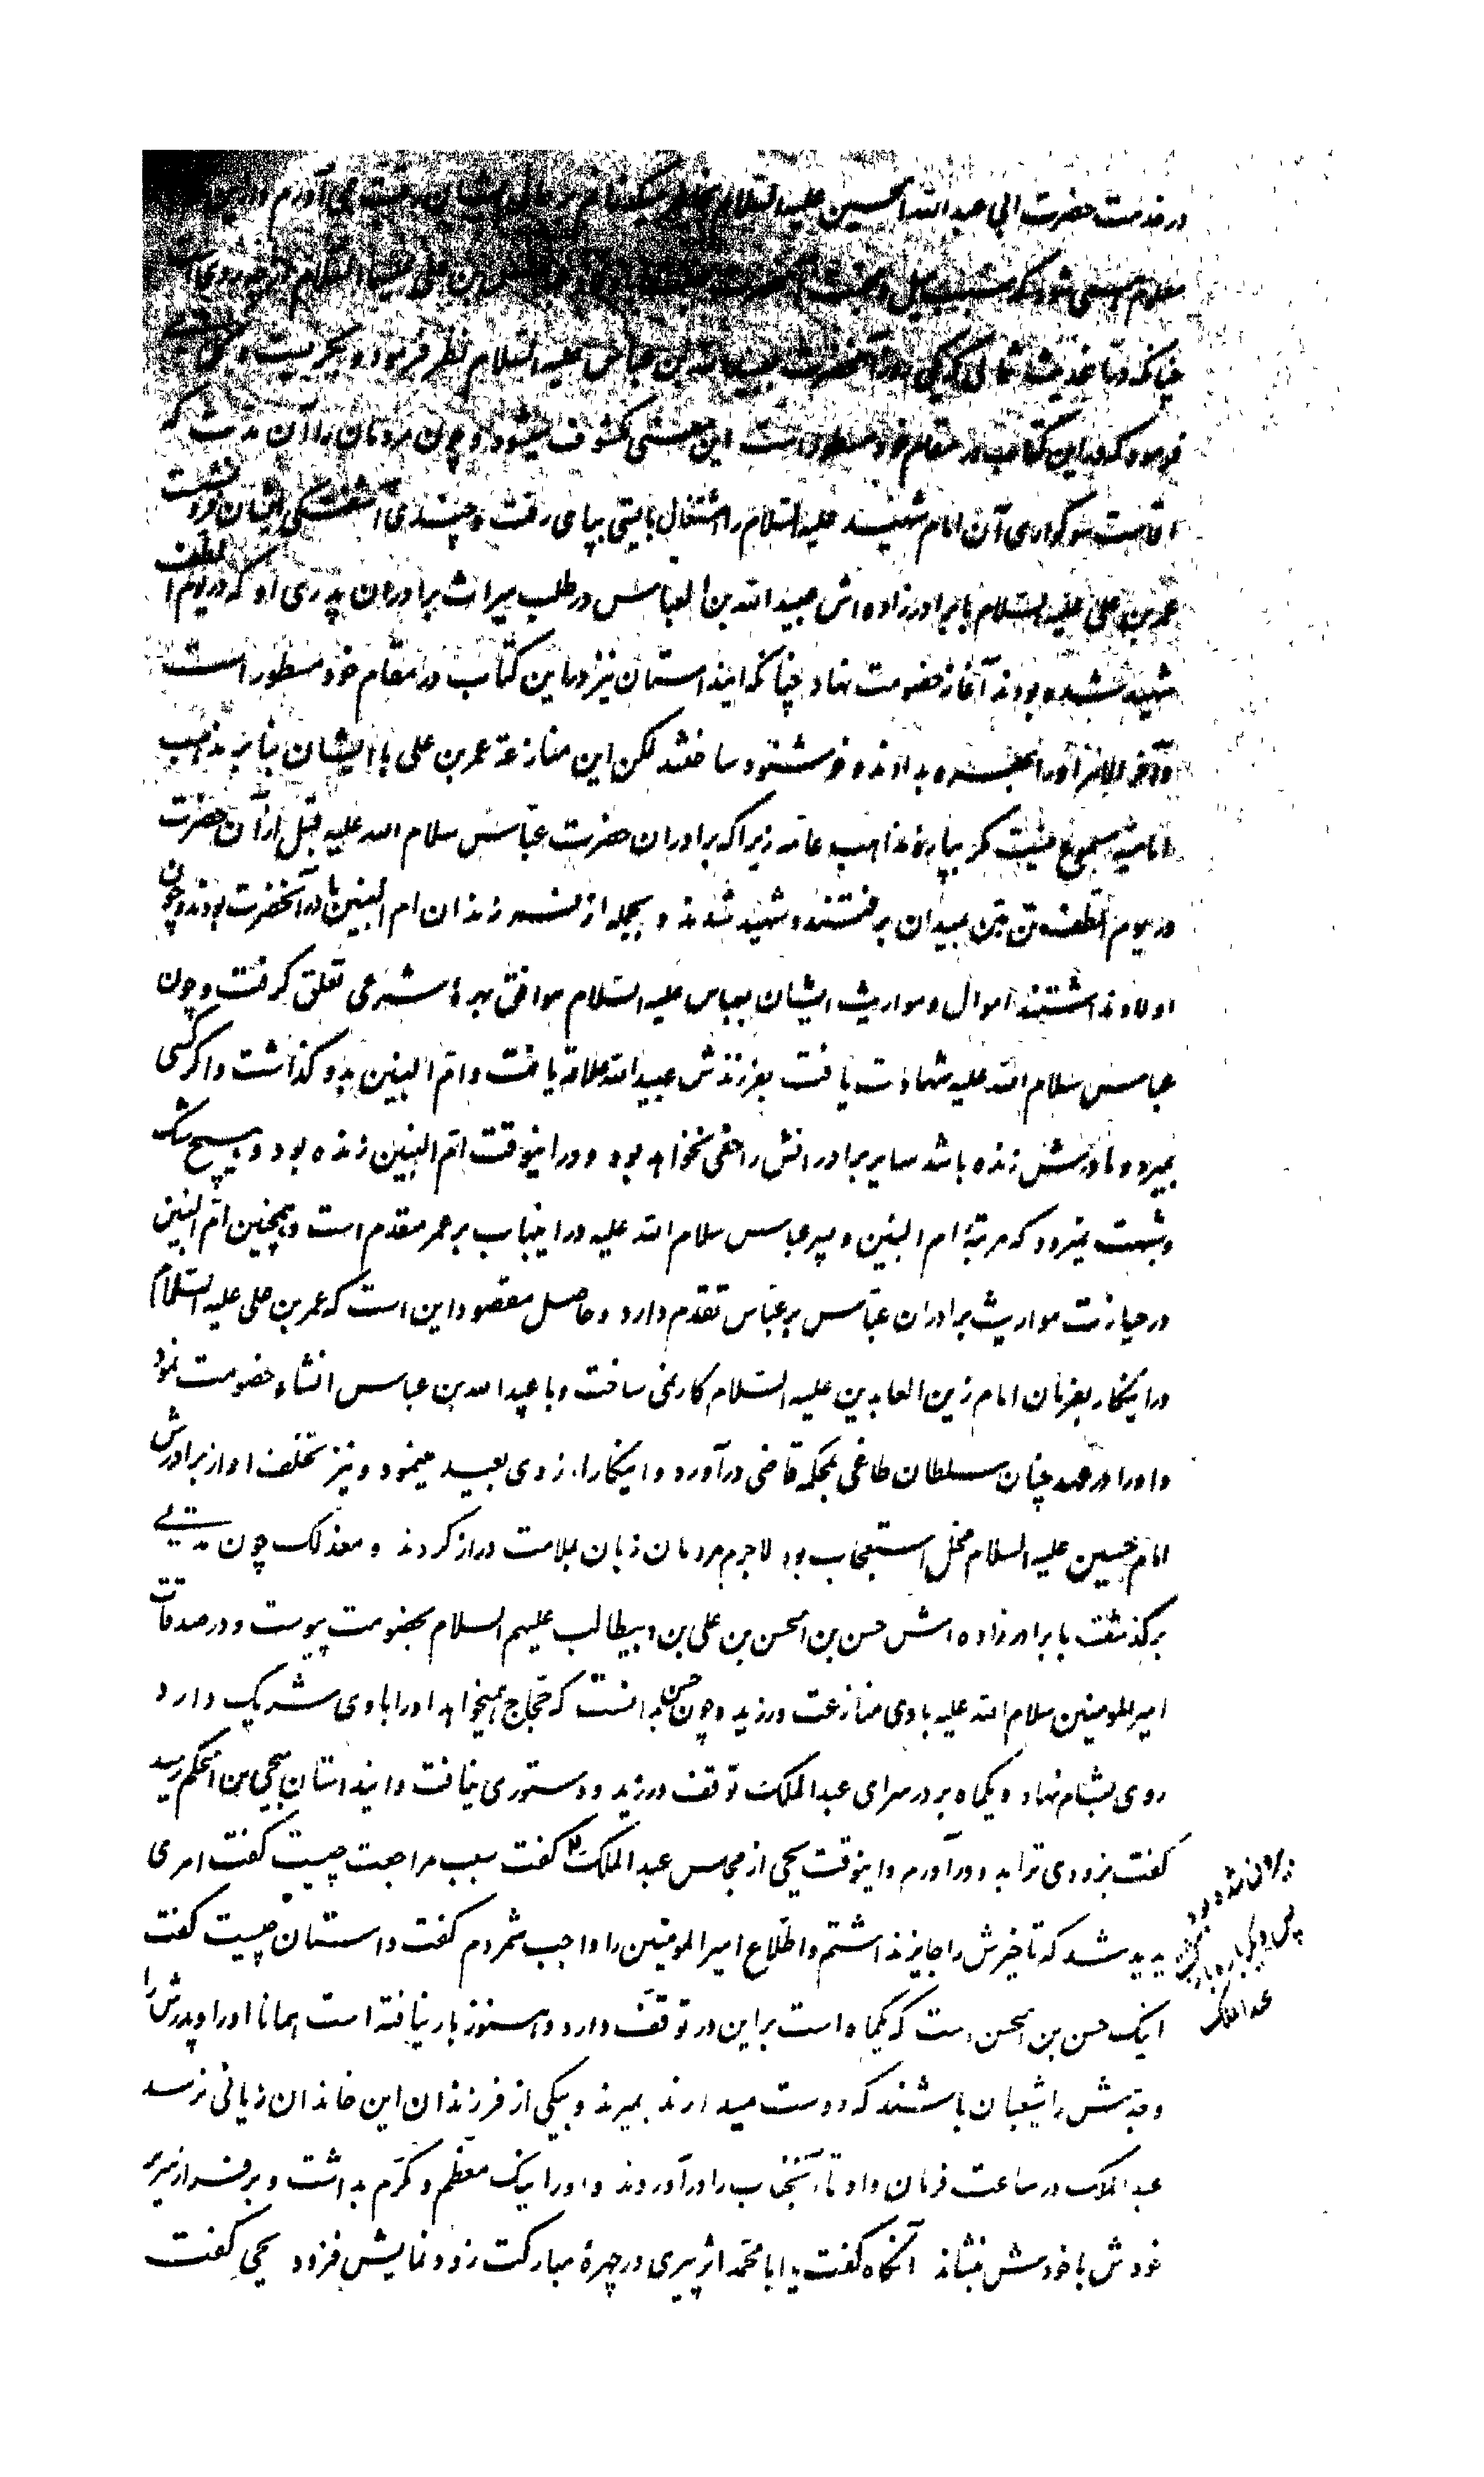 در خدمت حضرت ابی عبدالله الحسین علیه السلام
معلوم میشود که
چنانکه در آنحضرت بعبیدالله بن عباس علیه السلام نظر فرمود و بگریست و
فرمود که در این کتاب در مقام خود مسطور است این معنی مکشوف میشود و چون مردمان را آن مدت که
اقامت سوگواری آن امام شهید علیه السلام را اشتغال بایستی بپای رفت و چندی آشفتگی ایشان فرو نشست
عمر بن علی علیه السلام با برادرزاده اش عبیدالله بن العباس در طلب میراث برادران پدری او که در یوم الطف
شهید شده بودند آغاز خصومت نهاد چنانکه اینداستان نیز در این کتاب در مقام خود مسطور است
و آخر الامر او را بهره بدادند و خوشنود ساختند لکن این منازعة عمر بن علی با ایشان بنا بر مذهب
امامیه مسموع نیست مگر بپاره مذاهب عامه زیرا که برادران حضرت عباس سلام الله علیه قبل از آن حضرت
در یوم الطف تن بتن بمیدان برفتند و شهید شدند و بجمله از فرزندان ام البنین مادر آنحضرت بودند و چون
اولاد نداشتند اموال و مواریث ایشان بعباس علیه السلام موافق بهرهٔ شرعی تعلق گرفت و چون
عباس سلام الله علیه شهادت یافت بفرزندش عبیدالله علاقه یافت و ام البنین بدو گذاشت و اگر کسی
بمیرد و مادرش زنده باشد سایر برادرانش را حقی نخواهد بود و در اینوقت ام البنین زنده بود و هیچ شک
و شبهت نمیرود که مرتبهٔ ام البنین و پسر عباس سلام الله علیه در اینباب بر عمر مقدم است و همچنین ام البنین
در حیازت مواریث برادران عباس بر عباس تقدم دارد و حاصل مقصود این است که عمر بن علی علیه السلام
در اینکار بفرمان امام زین العابدین علیه السلام کار نمی ساخت و با عبیدالله بن عباس انشاء خصومت نمود
و او را در عهد چنان سلطان طاغی بمحکمه قاضی درآورد و اینکار از وی بعید مینمود و نیز تخلف او از برادرش
امام حسین علیه السلام محل استعجاب بود لاجرم مردمان زبان بملامت دراز کردند و معذلک چون مدتی
برگذشت با برادرزاده اش حسن بن الحسن بن علی بن ابیطالب علیهم السلام بخصومت پیوست و در صدقات
امیرالمومنین سلام الله علیه با وی منازعت ورزید و چون حسن بدانست که حجاج همیخواهد او را با وی شریک دارد
روی بشام نهاد و یکماه بر در سرای عبدالملک توقف ورزید و دستوری نیافت و اینداستان بیحیی بن الحکم رسید
گفت بزودی ترا بدو درآورم و اینوقت یحیی از مجلس عبدالملک گفت سبب مراجعت چیست گفت امری
پدید شد که تاخیرش را جایز نداشتم و اطلاع امیرالمومنین را واجب شمردم گفت داستان چیست گفت
اینک حسن بن الحسن است که یکماه است بر این در توقف دارد و هنوز بار نیافته است همانا او را و پدرش را
و جدش را شیعیان باشند که دوست میدارند بمیرند و بیکی از فرزندان این خاندان زیانی نرسد
عبدالملک در ساعت فرمان داد تا آنجناب را درآوردند و او را نیک معظم و مکرم بداشت و بر فراز سریر
خودش با خودش بنشاند آنگاه گفت یا ابا محمد اثر پیری در چهرهٔ مبارکت زود نمایش فزود یحیی گفت
بیرون شده بود
عبدالملک